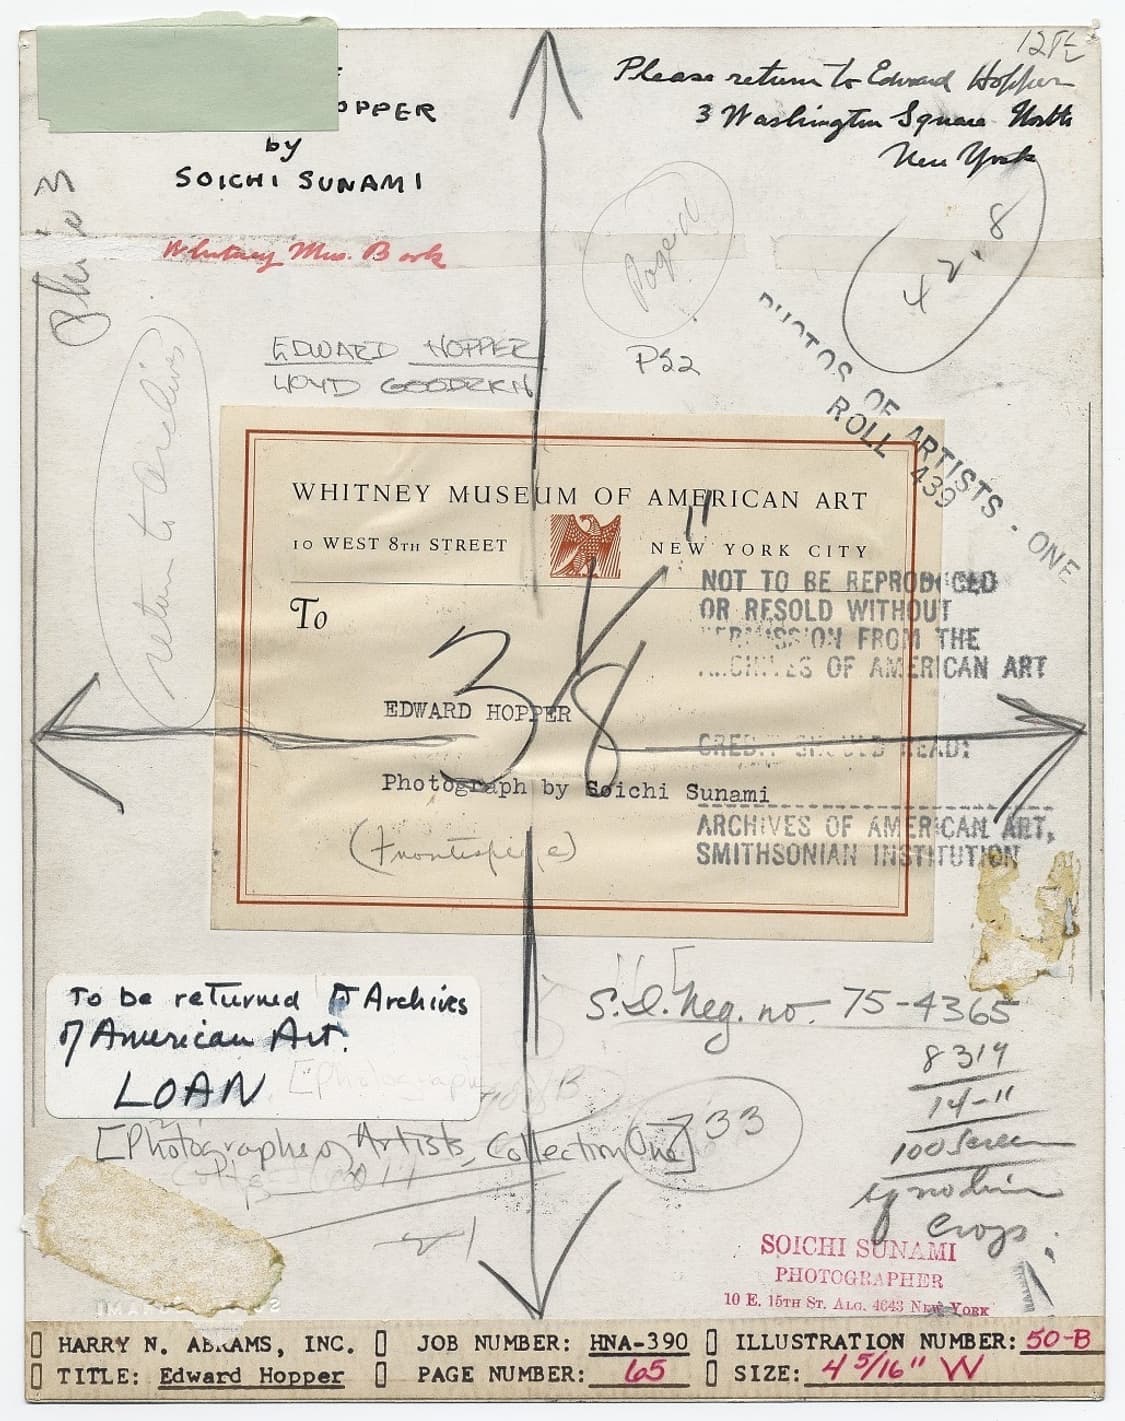 Please return to Edward Hopper
3 Washington Square North
New York
OPPER
by
SOICHI SUNAMI
Whitney Mus. Book
Page
42.8
PS2
EDWARD HOPPER
LLOYD GOODRICH
return to archives
PHOTOS OF ARTISTS - ONE
ROLL 439
WHITNEY MUSEUM OF AMERICAN ART
10 WEST 8TH STREET
NEW YORK CITY
To
38
EDWARD HOPPER
Photograph by Soichi Sunami
(Frontispiece)
NOT TO BE REPRODUCED
OR RESOLD WITHOUT
PERMISSION FROM THE
ARCHIVES OF AMERICAN ART
CREDIT SHOULD READ:
ARCHIVES OF AMERICAN ART,
SMITHSONIAN INSTITUTION
To be returned to Archives
of American Art.
LOAN
S.I. Neg. no. 75-4365
8314
14-11
100 Screen
[Photographs of Artists, Collection One]
733
SOICHI SUNAMI
PHOTOGRAPHER
10 E. 15TH ST. ALG. 4643 NEW YORK
HARRY N. ABRAMS, INC. JOB NUMBER: HNA-390 ILLUSTRATION NUMBER: 50-B
TITLE: Edward Hopper PAGE NUMBER: 65 SIZE: 4 5/16" W